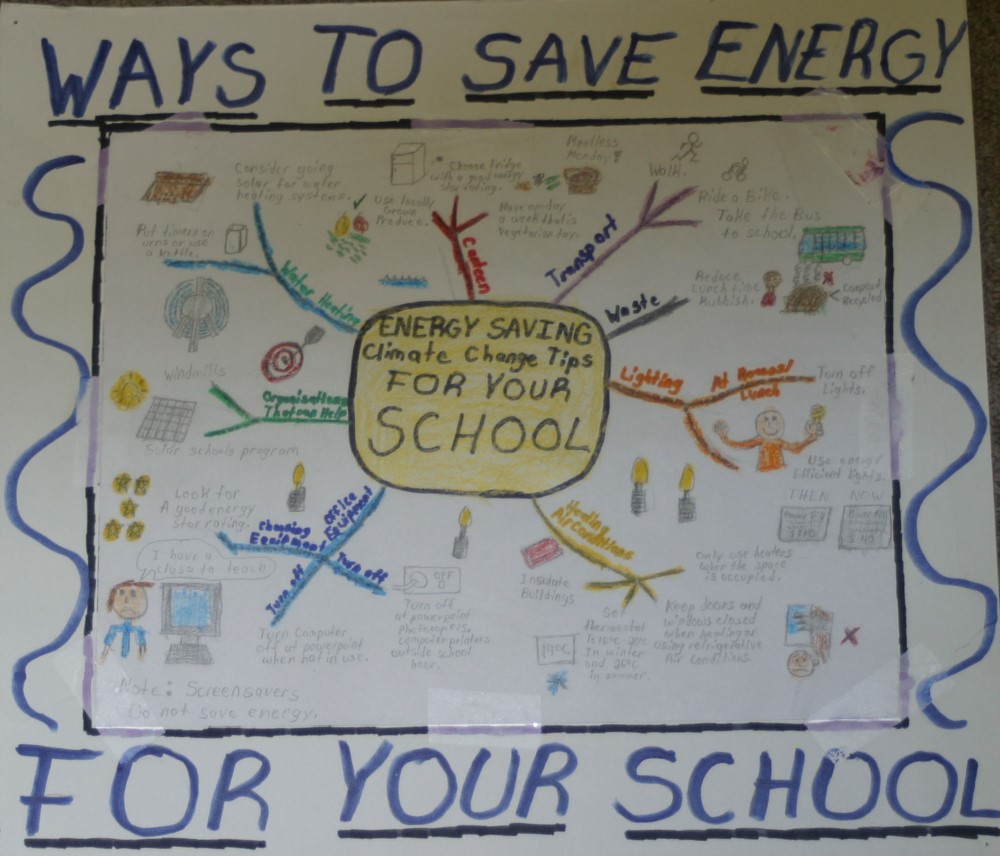 WAYS TO SAVE ENERGY
Consider going
solar for water
heating systems.
Put timers on
urns or use
a kettle.
Water Heating
Use locally
Grown
Produce.
Choose fridge
with a good energy
star rating.
Meatless
Monday!
Have one day
a week that is
Vegetarian day.
Canteen
Transport
Walk.
Ride a Bike.
Take the Bus
to school.
Waste
Reduce
Lunch time
Rubbish.
Compost
Recycled
ENERGY SAVING
Climate Change Tips
FOR YOUR
SCHOOL
Lighting
At Recess/
Lunch
Turn off
Lights.
Use energy
Efficient lights.
THEN NOW
Power Bill
Power Bill
Windmills
Organisations
That can Help
Solar schools program
Look for
A good energy
Star rating.
Choosing
Equipment
Office
Equipment
Turn off
Turn off
I have a
class to teach
OFF
Turn Computer
off at powerpoint
when not in use.
Turn off
at powerpoint
Photocopiers,
computer printers
outside school
hour.
Note: Screensavers
Do not save energy.
Heating
Air Conditions
Insulate
Buildings
Set
thermostat
In winter
and 26°C
in summer.
19°C
Only use heaters
when the space
is occupied.
Keep doors and
windows closed
when heating or
using refrigerative
Air Conditions.
FOR YOUR SCHOOL